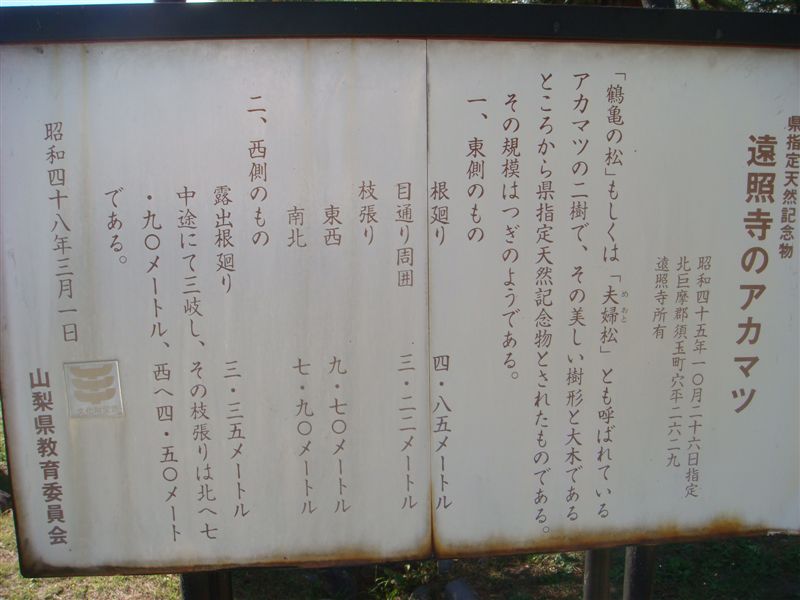 県指定天然記念物
遠照寺のアカマツ
昭和四十五年一〇月二十六日指定
北巨摩郡須玉町穴平二六二九
遠照寺所有
「鶴亀の松」もしくは「夫婦松」とも呼ばれている
めおと
アカマツの二樹で、その美しい樹形と大木である
ところから県指定天然記念物とされたものである。
その規模はつぎのようである。
一、東側のもの
根廻り 四・八五メートル
目通り周囲 三・二二メートル
枝張り
東西 九・七〇メートル
南北 七・九〇メートル
二、西側のもの
露出根廻り 三・三五メートル
中途にて三岐し、その枝張りは北へ七
・九〇メートル、西へ四・五〇メート
である。
昭和四十八年三月一日
山梨県教育委員会